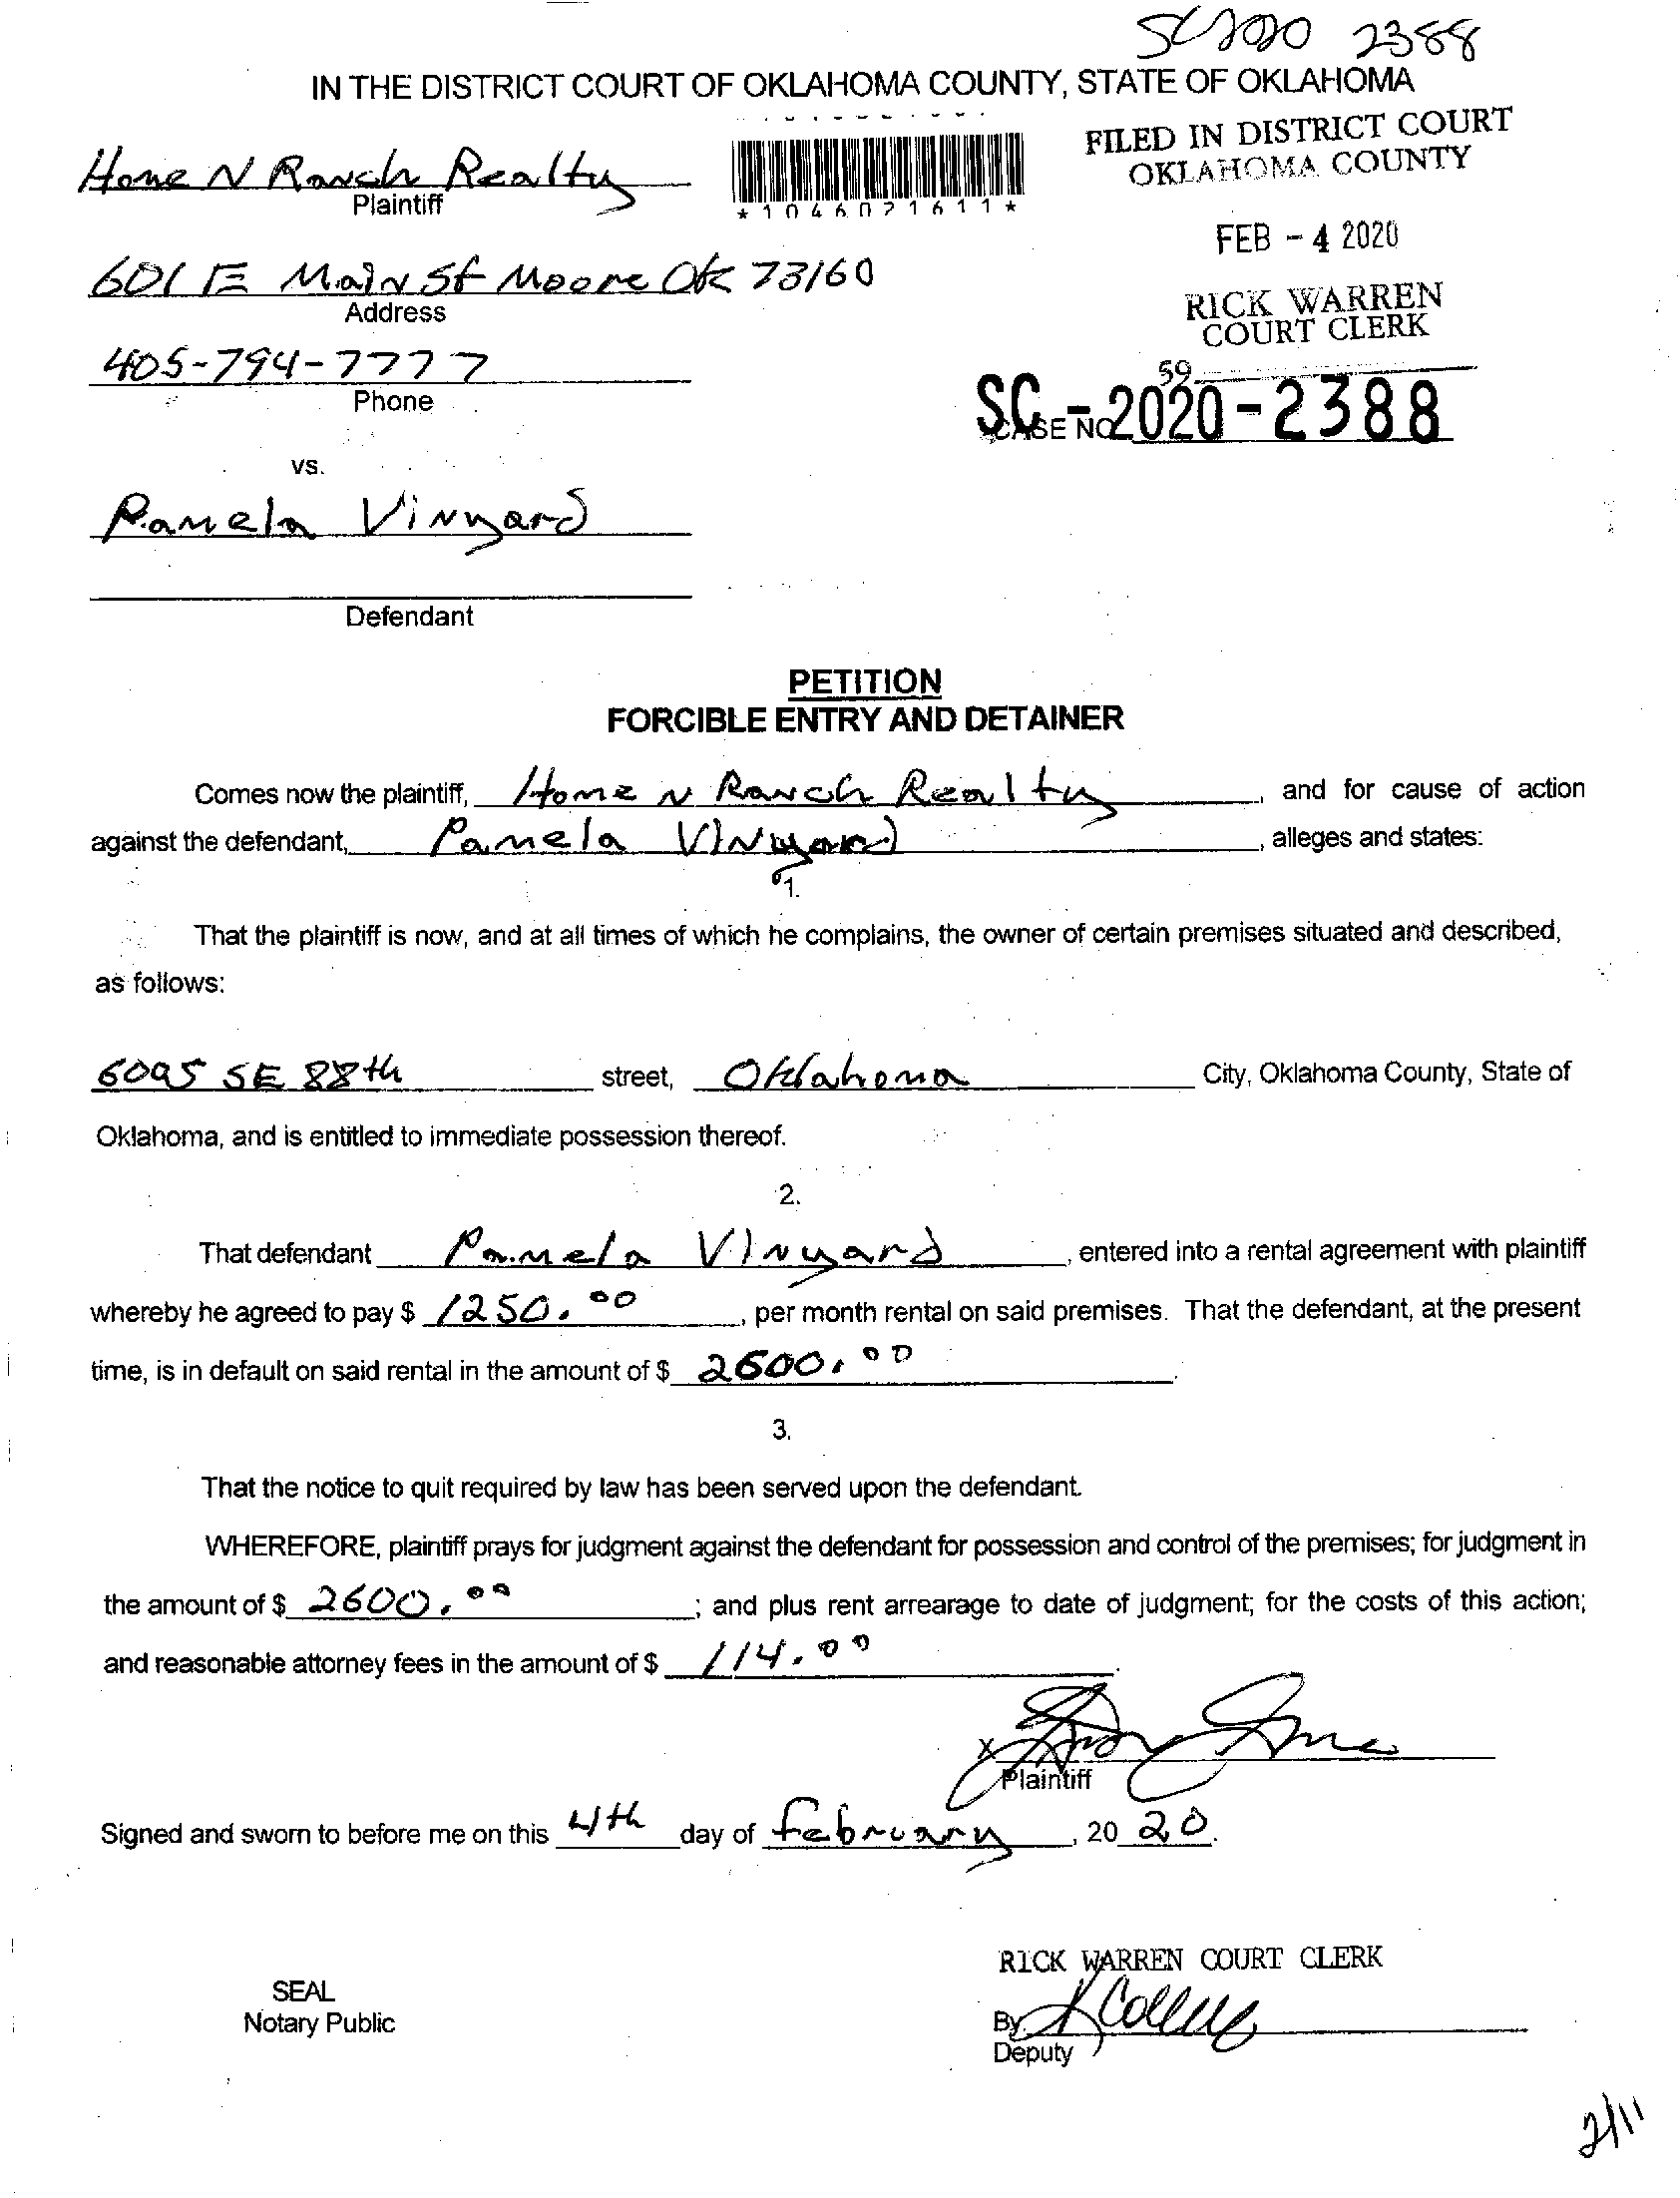 SC2020 2388
IN THE DISTRICT COURT OF OKLAHOMA COUNTY, STATE OF OKLAHOMA
Home N Ranch Realty
Plaintiff
*1046021611*
FILED IN DISTRICT COURT
OKLAHOMA COUNTY
FEB - 4 2020
601 E Main St Moore Ok 73160
Address
RICK WARREN
COURT CLERK
405-794-7777
Phone
59
SC-2020-2388
CASE NO.
vs.
Pamela Vinyard
Defendant
PETITION
FORCIBLE ENTRY AND DETAINER
Comes now the plaintiff, Home N Ranch Realty, and for cause of action
against the defendant, Pamela Vinyard, alleges and states:
1.
That the plaintiff is now, and at all times of which he complains, the owner of certain premises situated and described,
as follows:
6095 SE 88th street, Oklahoma City, Oklahoma County, State of
Oklahoma, and is entitled to immediate possession thereof.
2.
That defendant Pamela Vinyard, entered into a rental agreement with plaintiff
whereby he agreed to pay $ 1250.00, per month rental on said premises. That the defendant, at the present
time, is in default on said rental in the amount of $ 2600.00.
3.
That the notice to quit required by law has been served upon the defendant.
WHEREFORE, plaintiff prays for judgment against the defendant for possession and control of the premises; for judgment in
the amount of $ 2600.00; and plus rent arrearage to date of judgment; for the costs of this action;
and reasonable attorney fees in the amount of $ 114.00.
X
Plaintiff
Signed and sworn to before me on this 4th day of February, 2020.
RICK WARREN COURT CLERK
SEAL
Notary Public
By
Deputy
2/11